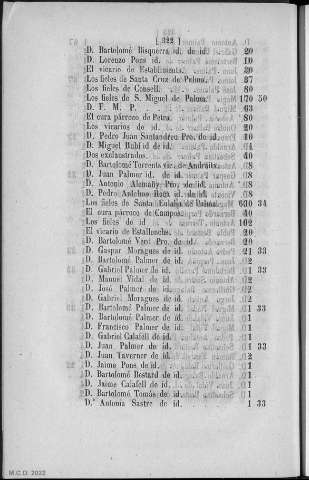 [ 322 ]
D. Bartolomé Bisquerra id. de id. 20
D. Lorenzo Pons id. 10
El vicario de Establiments. 20
Los fieles de Santa Cruz de Palma. 37
Los fieles de Consell. 80
Los fieles de S. Miguel de Palma. 170 50
D. F. M. P. 63
El cura párroco de Petra. 80
Los vicarios de id. 20
D. Pedro Juan Santandreu Pro. de id. 10
D. Miguel id. de id. 10
Dos exclaustrados. 40
D. Bartolomé Torrents vic. de Andraitx. 8
D. Juan Palmer id. de id. 8
D. Antonio Alemañy, Pro. de id. 8
D. Pedro Antelmo Boca id. de id. 8
Los fieles de Santa Eulalia de Palma. 630 34
El cura párroco de Campos. 40
Los fieles de id 102
El vicario de Estallenchs. 20
D. Bartolomé Vert Pro. de id. 20
D. Gaspar Moragues de id. 21 33
D. Bartolomé Palmer de id. 2
D. Gabriel Palmer de id. 1 33
D. Manuel Vidal de id. 2
D. José Palmer de id. 2
D. Gabriel Moragues de id. 2
D. Bartolomé Palmer de id. 1 33
D. Bartolomé Palmer de id. 1
D. Francisco Palmer de id. 1
D. Gabriel Calafell de id. 1
D. Juan Palmer de id. 1 33
D. Juan Taverner de id. 2
D. Jaime Pons de id. 1
D. Bartolomé Bestard de id. 1
D. Jaime Calafell de id. 1
D. Bartolomé Tomás de id. 1
D.ª Antonia Sastre de id. 1 33
M.C.D. 2022